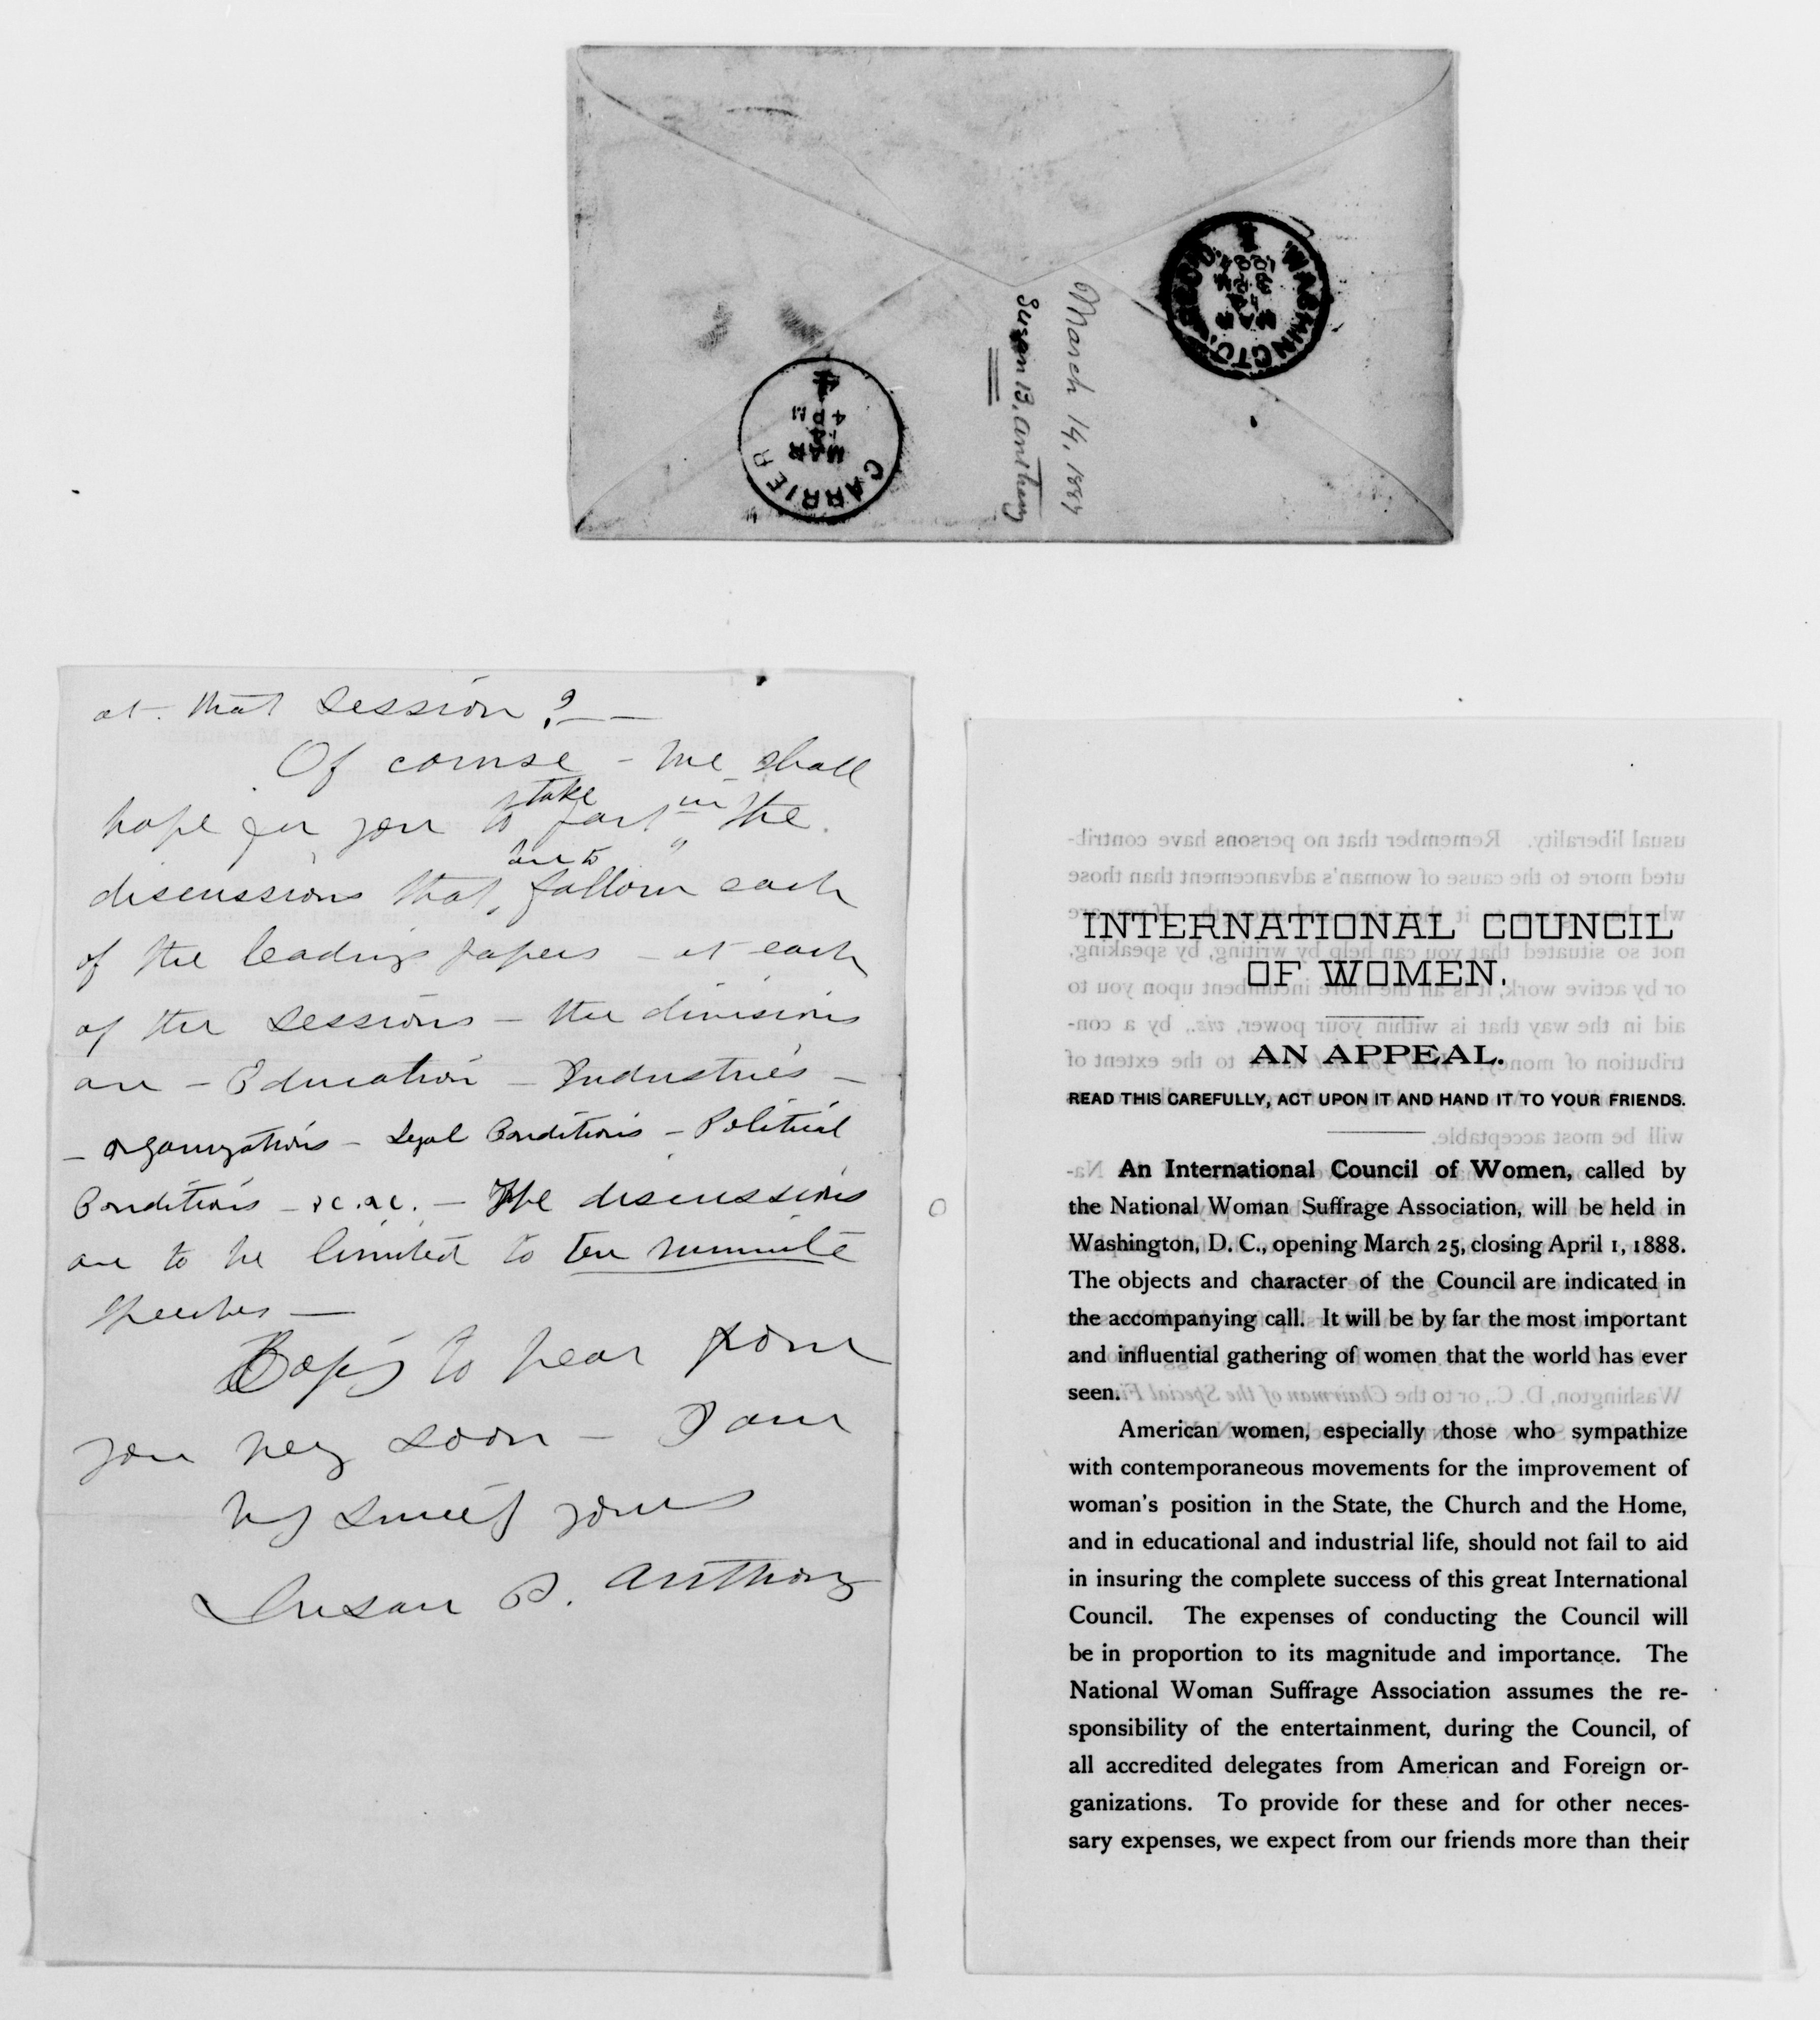 WASHINGTON, RECD.
MAR
14
3 PM
188
1
CARRIER
MAR
14
4 PM
4
March 14, 188
Susan B. Anthony
at that session? — —
Of course - we shall
hope for you to take part in the
discussions that are to follow each
of the leading papers - at each
of the sessions - the divisions
are - Education - Industries -
- Organizations - Legal Conditions - Political
Conditions - &c. &c. - The discussions
are to be limited to ten minute
speeches —
Hoping to hear from
you very soon - I am
Very Sincerely yours
Susan B. Anthony
INTERNATIONAL COUNCIL
OF WOMEN.
AN APPEAL.
READ THIS CAREFULLY, ACT UPON IT AND HAND IT TO YOUR FRIENDS.
An International Council of Women, called by
the National Woman Suffrage Association, will be held in
Washington, D. C., opening March 25, closing April 1, 1888.
The objects and character of the Council are indicated in
the accompanying call. It will be by far the most important
and influential gathering of women that the world has ever
seen.
American women, especially those who sympathize
with contemporaneous movements for the improvement of
woman's position in the State, the Church and the Home,
and in educational and industrial life, should not fail to aid
in insuring the complete success of this great International
Council. The expenses of conducting the Council will
be in proportion to its magnitude and importance. The
National Woman Suffrage Association assumes the re-
sponsibility of the entertainment, during the Council, of
all accredited delegates from American and Foreign or-
ganizations. To provide for these and for other neces-
sary expenses, we expect from our friends more than their